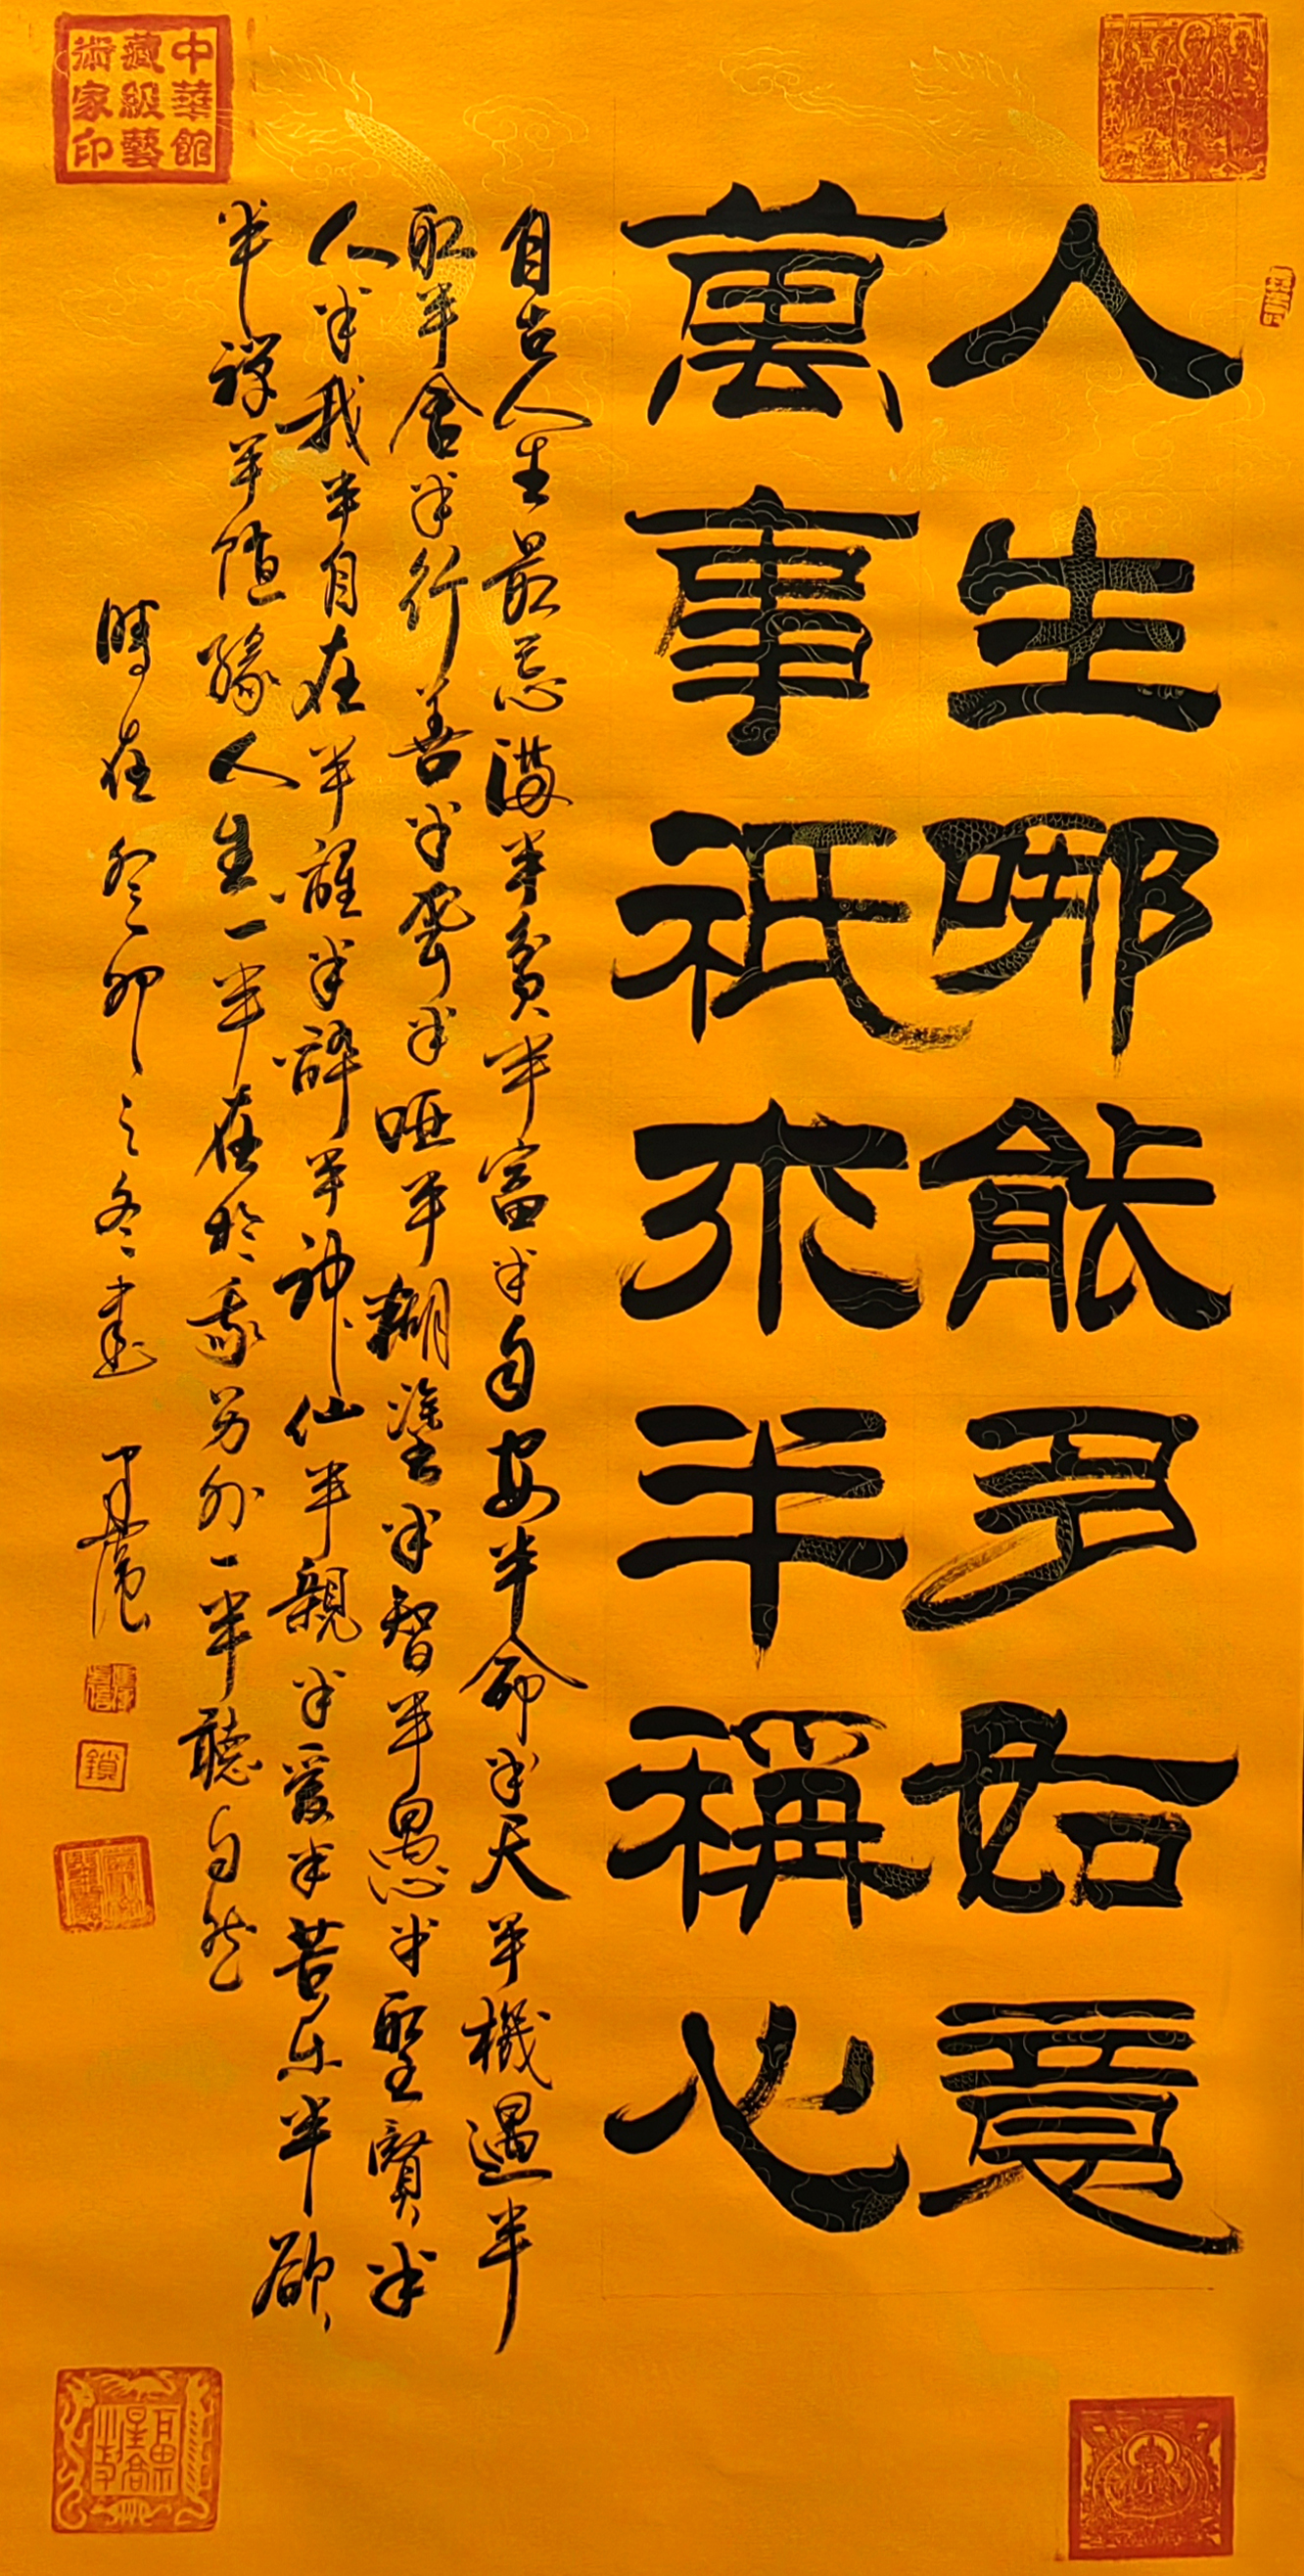 人生哪能多如意
萬事祇求半稱心
自古人生最忌滿半貧半富半自安半命半天半機遇半
取半舍半行善半聾半啞半糊塗半智半愚半聖賢半
人半我半自在半醒半醉半神仙半親半愛半苦乐半欲
半禅半随緣人生一半在於我另外一半聽自然
時在癸卯之冬書
中華館藏級藝術家印
鎖